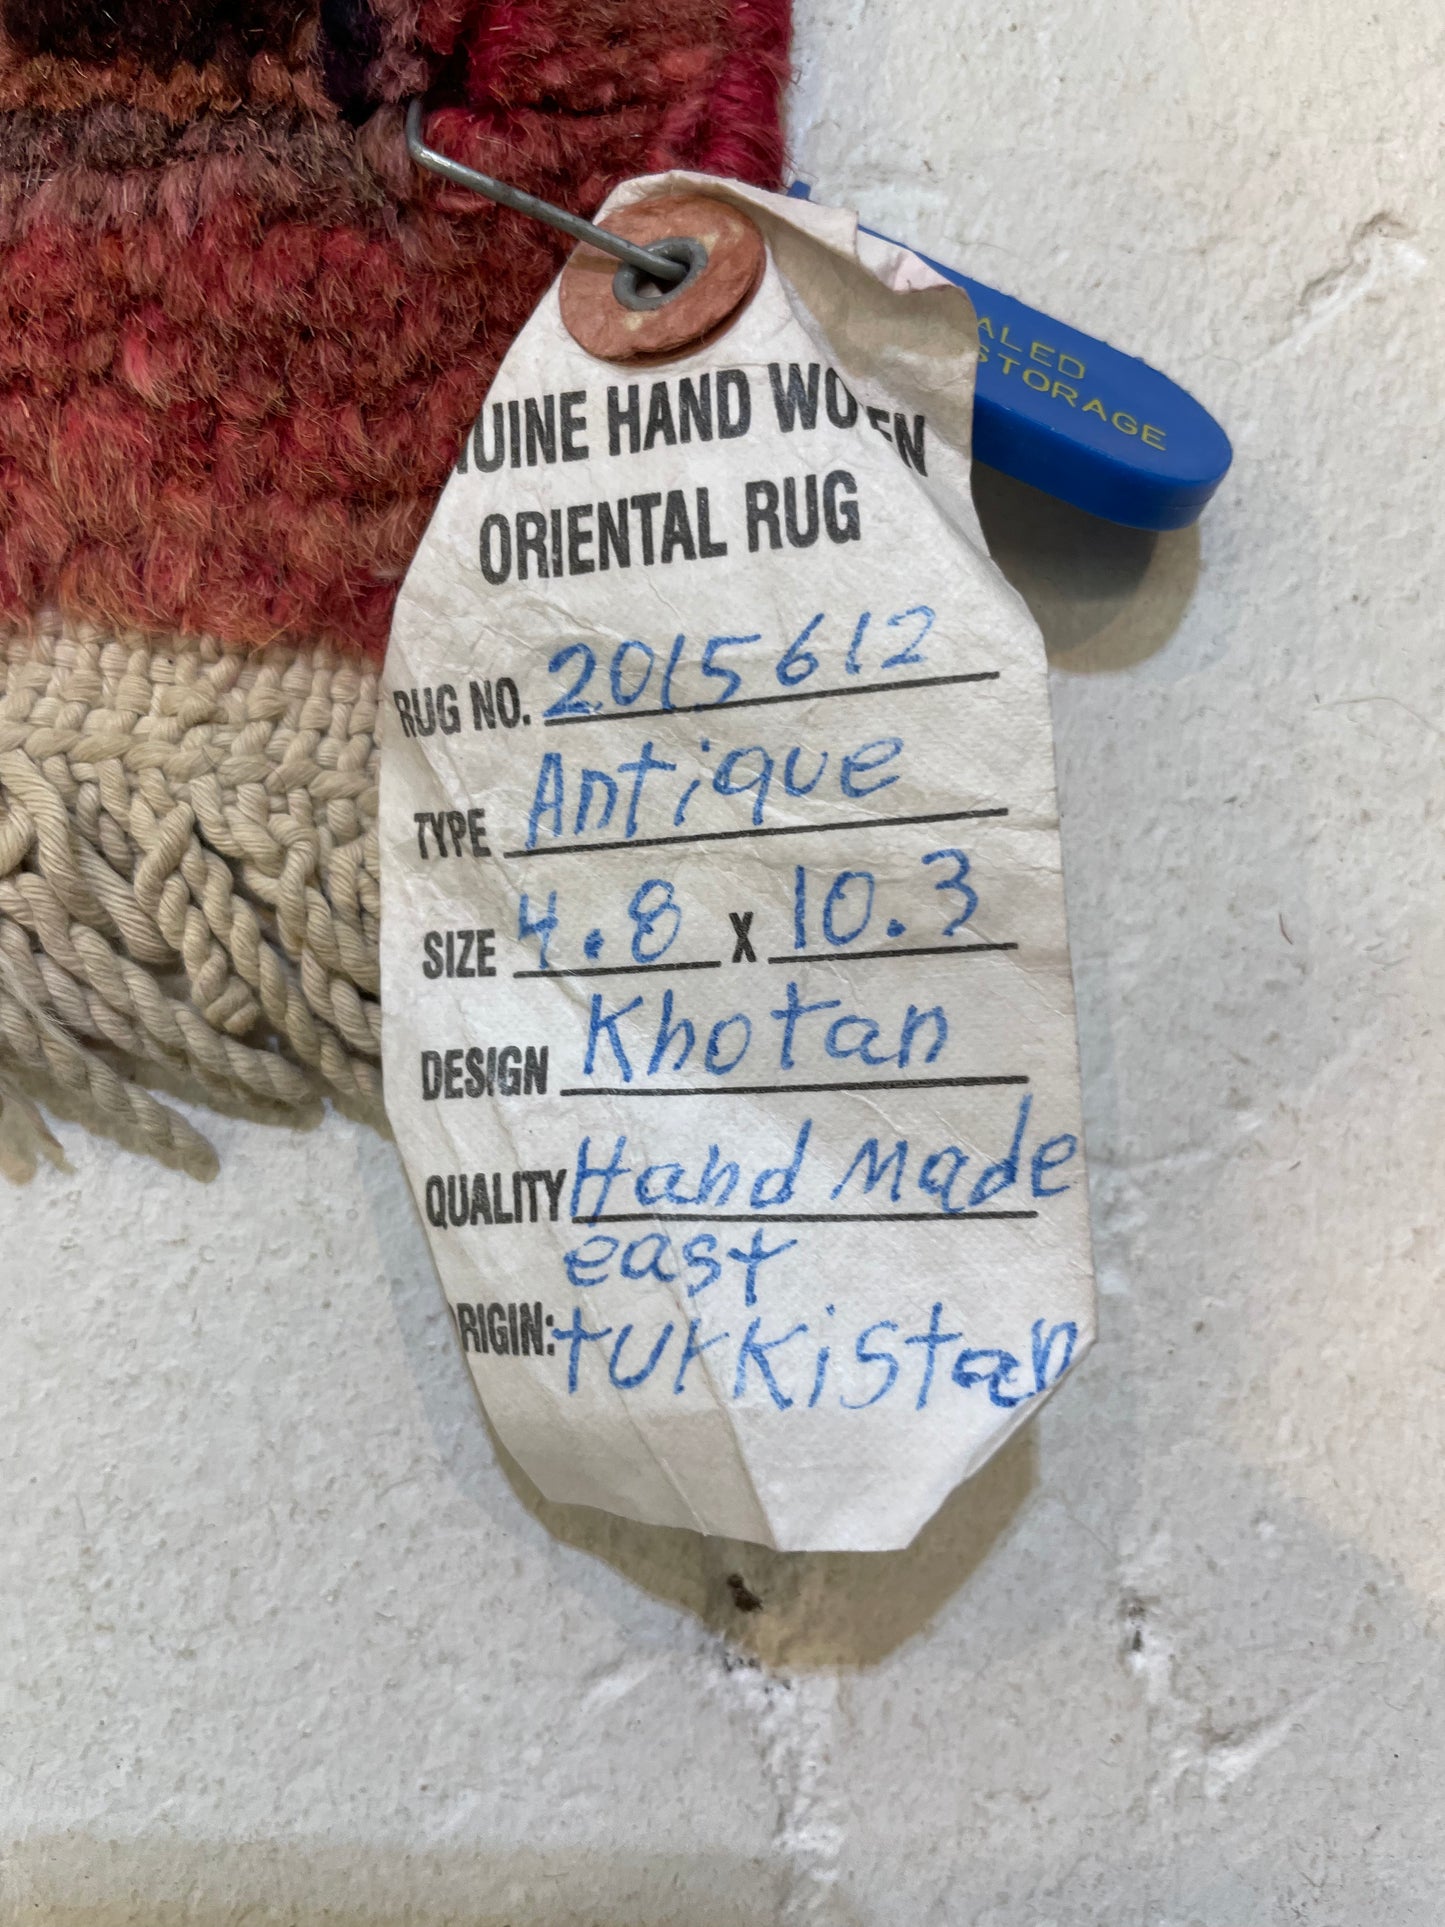 UINE HAND WOVEN
ORIENTAL RUG
RUG NO. 2015612
TYPE Antique
SIZE 4.8 X 10.3
DESIGN Khotan
QUALITY Hand Made
east
RIGIN: turkistan
ALED
STORAGE